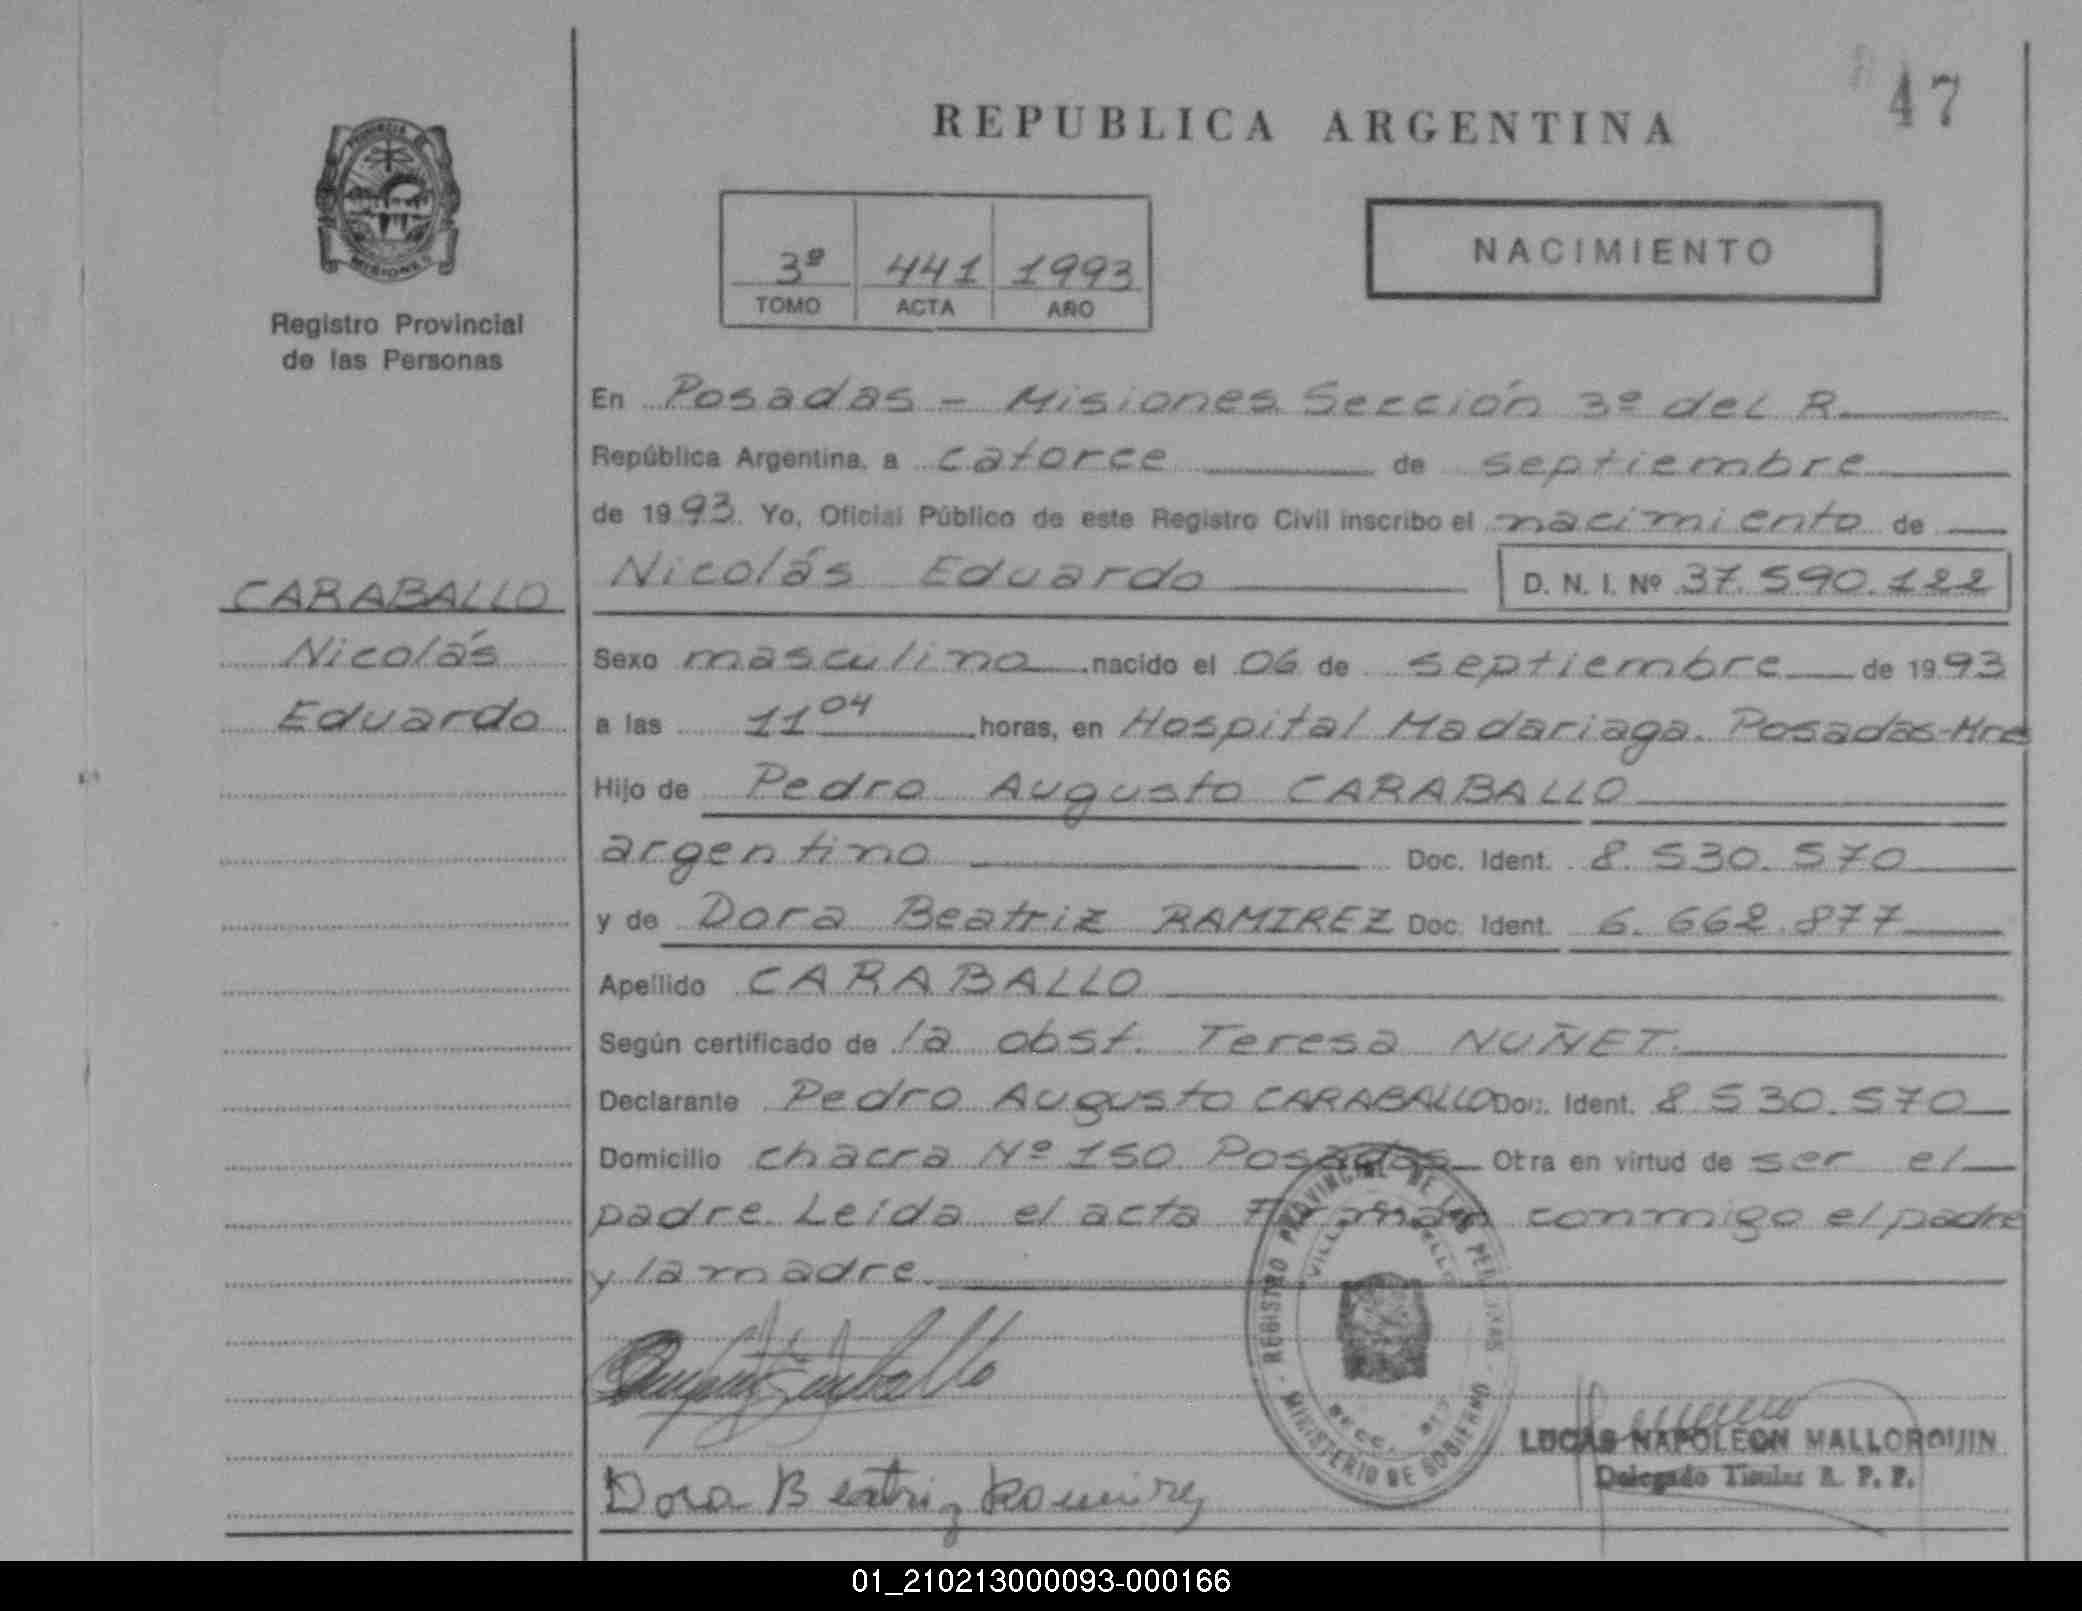 47
REPUBLICA ARGENTINA
PROVINCIA DE
MISIONES
Registro Provincial
de las Personas
3º 441 1993
TOMO ACTA AÑO
NACIMIENTO
En Posadas - Misiones Sección 3º del R.
República Argentina, a catorce de septiembre
de 1993. Yo, Oficial Público de este Registro Civil inscribo el nacimiento de
Nicolás Eduardo D. N. I. Nº 37.590.122
CARABALLO
Nicolás
Eduardo
Sexo masculino nacido el 06 de septiembre de 1993
a las 11 04 horas, en Hospital Madariaga. Posadas-Mnes
Hijo de Pedro Augusto CARABALLO
argentino Doc. Ident. 8.530.570
y de Dora Beatriz RAMIREZ Doc. Ident. 6.662.877
Apellido CARABALLO
Según certificado de la obst. Teresa NUÑET.
Declarante Pedro Augusto CARABALLO Doc. Ident. 8 530.570
Domicilio chacra Nº 150 Posadas Otra en virtud de ser el
padre. Leída el acta Firman conmigo el padre
y la madre.
REGISTRO PROVINCIAL DE LAS PERSONAS
MINISTERIO DE GOBIERNO
LUCAS NAPOLEON MALLORQUIN
Delegado Titular R. P. P.
Dora Beatriz Ramirez
01_210213000093-000166